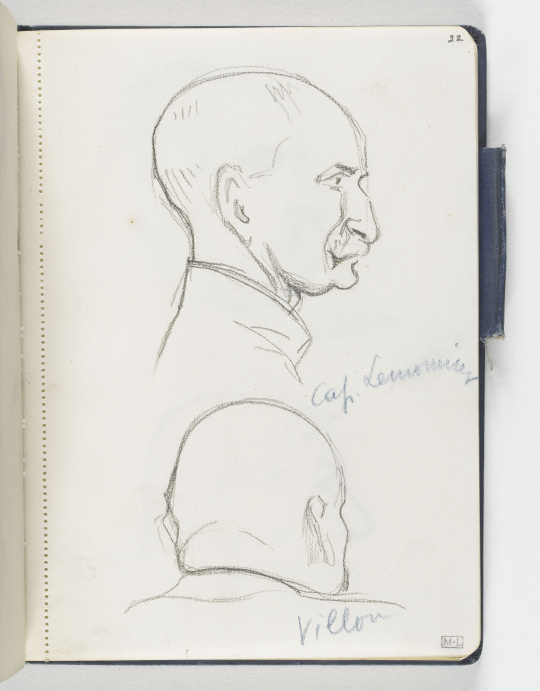 22
Cap. Lemonnier
Villon
M-L